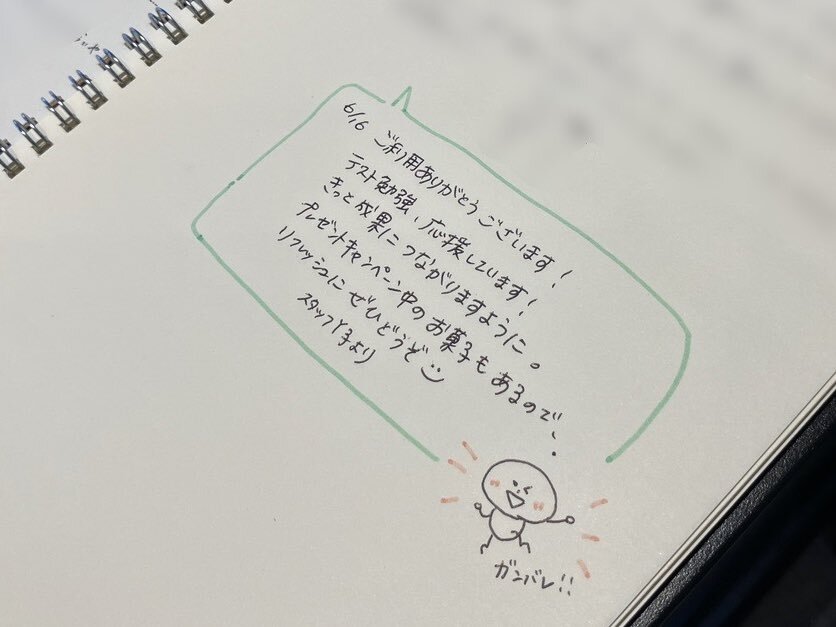 6/16 ご利用ありがとうございます!
テスト勉強、応援しています!
きっと成果につながりますように。
プレゼントキャンペーン中のお菓子もあるので、
リフレッシュにぜひどうぞ
スタッフY子より
ガンバレ!!